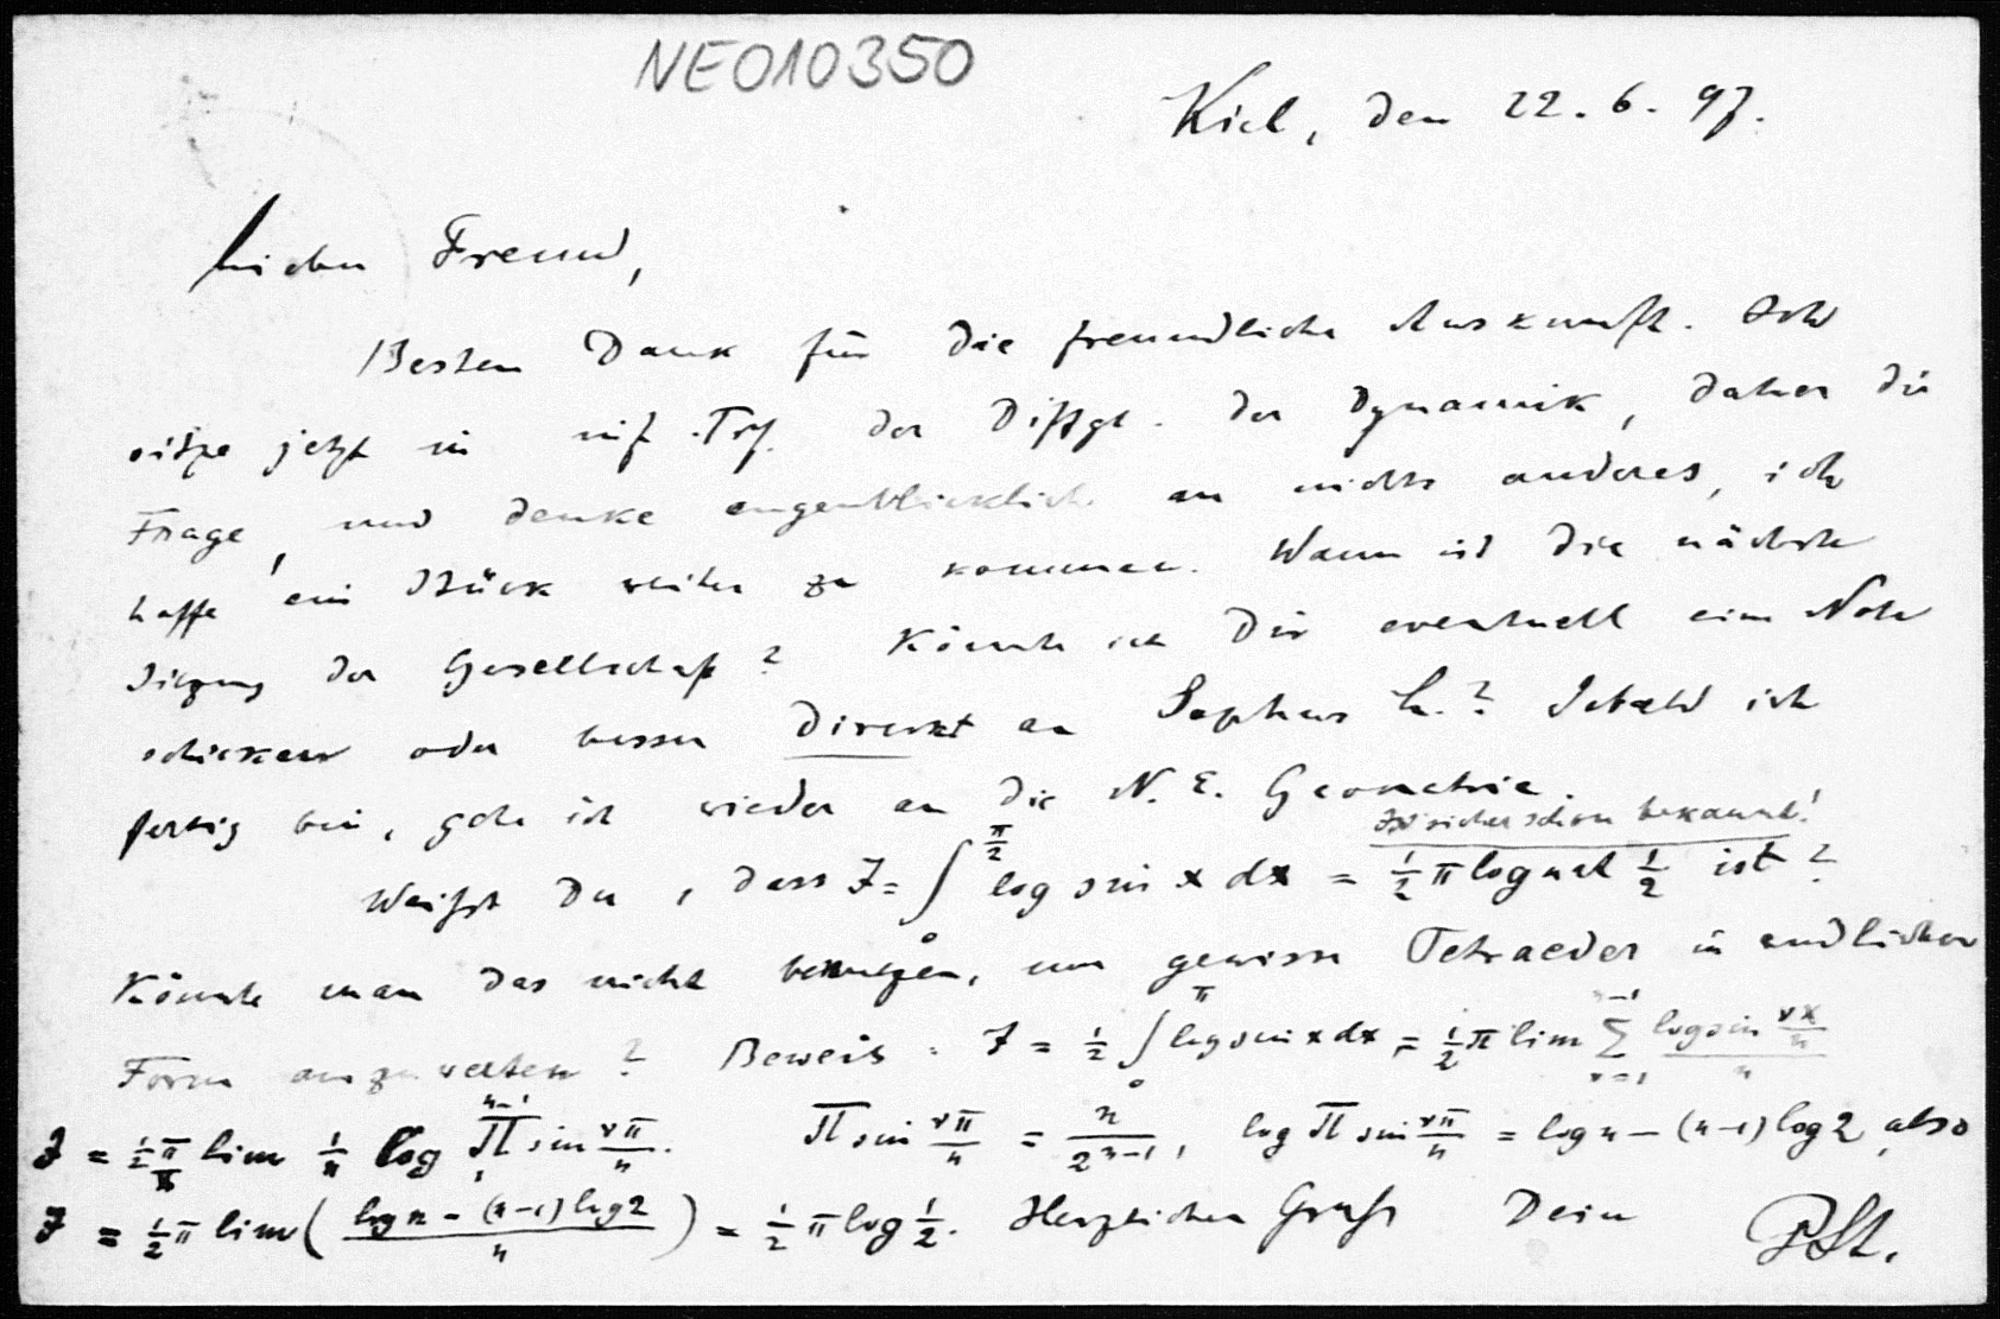 NE010350
Kiel, den 22. 6. 97.
Lieber Freund,
Besten Dank für die freundliche Auskunft. Ich
sitze jetzt in inf. Trf. der Diffgl. der Dynamik, daher die
Frage, und denke augenblicklich an nichts anderes, ich
hoffe ein Stück weiter zu kommen. Wann ist die nächste
Sitzung der Gesellschaft? Könnte ich Dir eventuell eine Note
schicken oder besser direkt an Sophus L.? Sobald ich
fertig bin, gehe ich wieder an die N. E. Geometrie.
Ist sicher schon bekannt!
Weißt Du, dass J = ∫₀^{π/2} log sin x dx = ½ π log nat ½ ist?
Könnte man das nicht benutzen, um gewisse Tetraeder in endlicher
Form auszuwerten? Beweis: J = ½ ∫₀^π log sin x dx = ½ π lim ∑_{ν=1}^{n-1} log sin νπ/n / n
J = ½ π lim 1/n log ∏₁^{n-1} sin νπ/n. ∏ sin νπ/n = n/2^{n-1}, log ∏ sin νπ/n = log n − (n-1) log 2, also
J = ½ π lim ( log n − (n-1) log 2 / n ) = ½ π log ½. Herzlichen Gruß Dein P St.